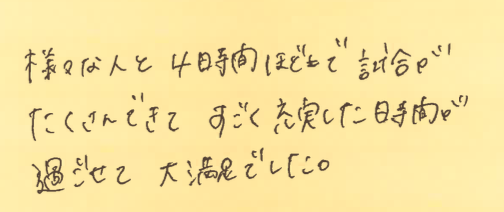 様々な人と 4時間ほどで 試合が
たくさんできて すごく充実した時間が
過ごせて 大満足でした。